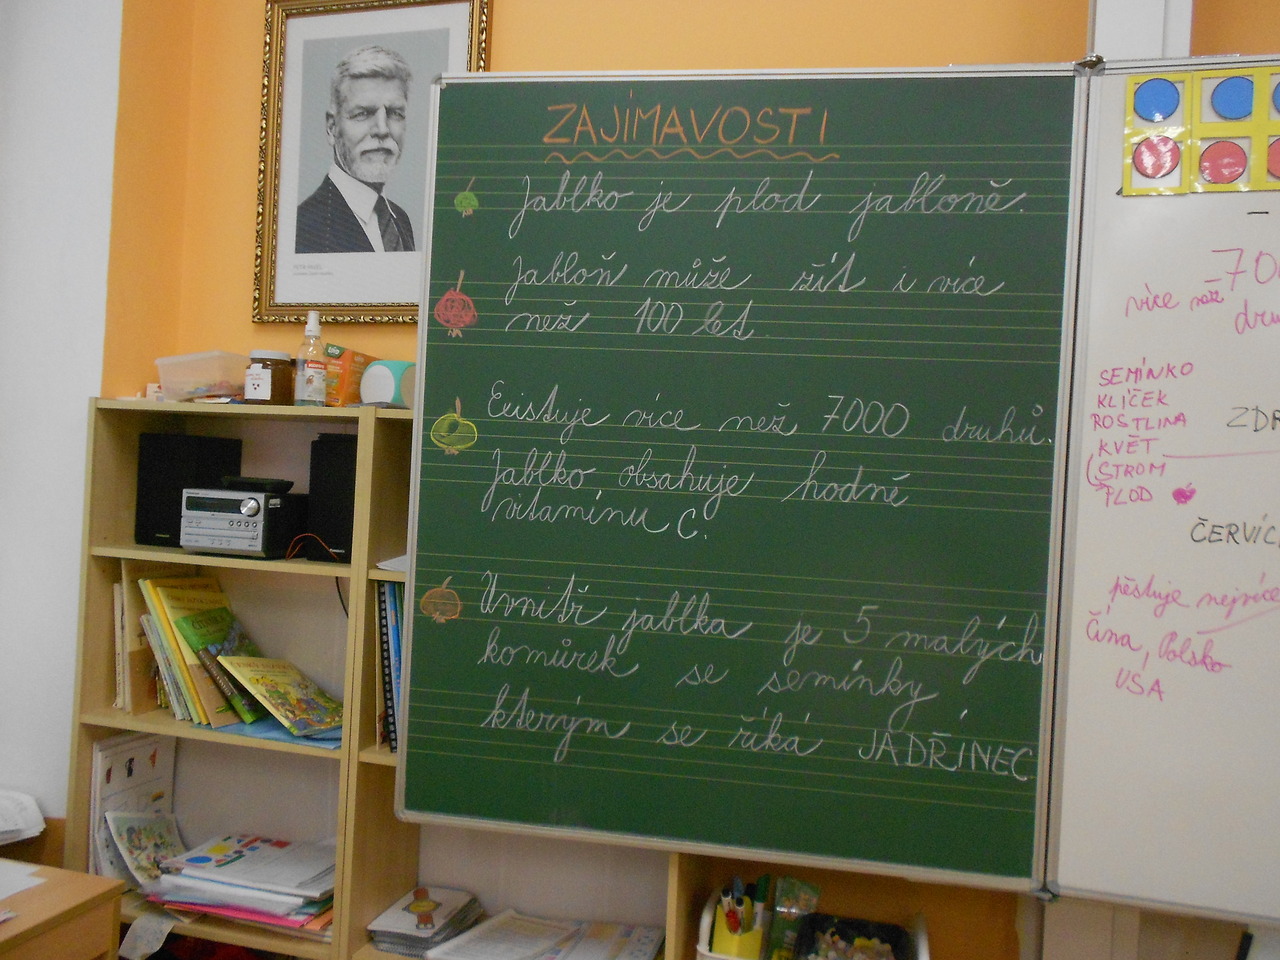 ZAJÍMAVOSTI
Jablko je plod jabloně.
Jabloň může žít i více
než 100 let
Existuje více než 7000 druhů.
Jablko obsahuje hodně
vitamínu C.
Uvnitř jablka je 5 malých
komůrek se semínky
kterým se říká JADŘINEC
700
více než
dru
SEMÍNKO
KLÍČEK
ROSTLINA
KVĚT
STROM
PLOD
ZDR
ČERVÍC
pěstuje nejvíce
Čína, Polsko
USA
PETR PAVEL